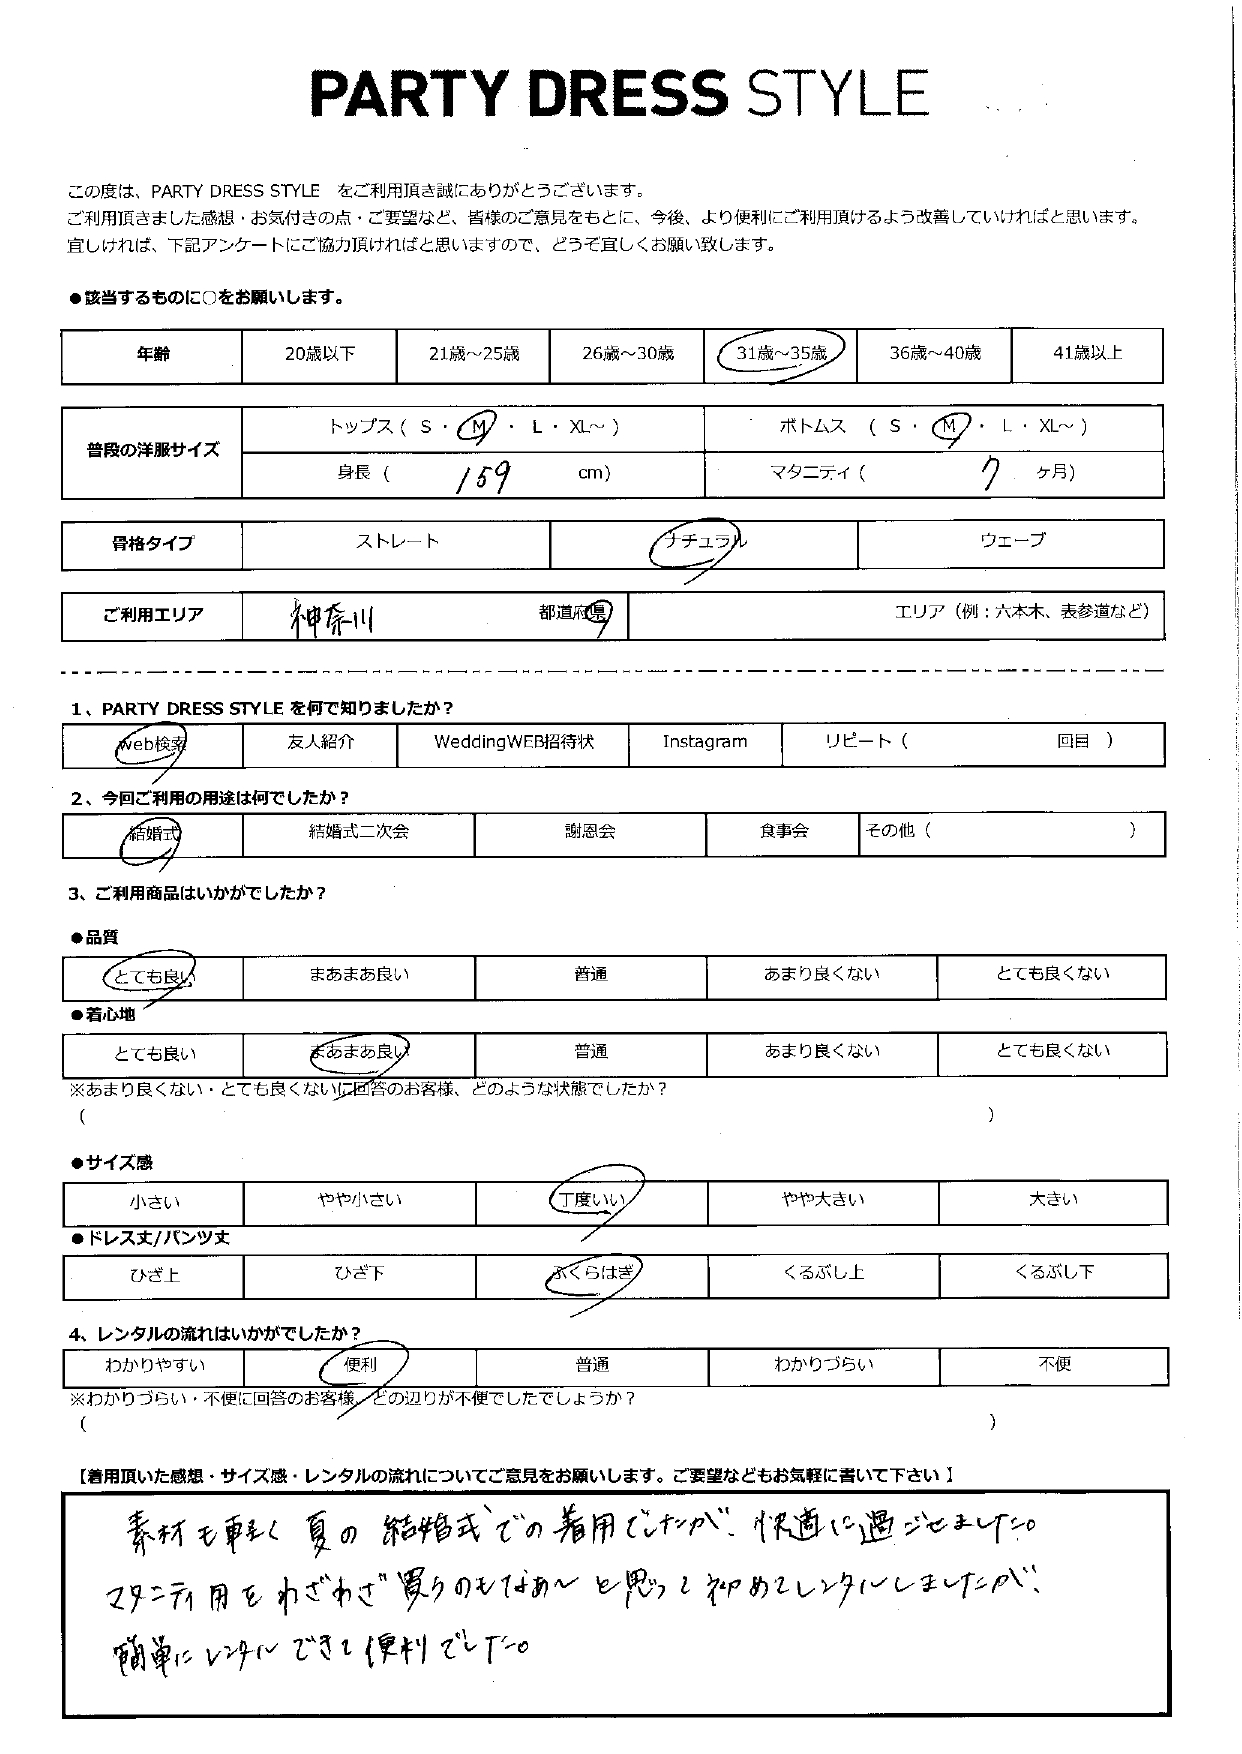 PARTY DRESS STYLE
この度は、PARTY DRESS STYLE　をご利用頂き誠にありがとうございます。
ご利用頂きました感想・お気付きの点・ご要望など、皆様のご意見をもとに、今後、より便利にご利用頂けるよう改善していければと思います。
宜しければ、下記アンケートにご協力頂ければと思いますので、どうぞ宜しくお願い致します。
●該当するものに○をお願いします。
年齢 20歳以下 21歳～25歳 26歳～30歳 31歳～35歳 36歳～40歳 41歳以上
普段の洋服サイズ トップス ( S ・ M ・ L ・ XL～ ) ボトムス ( S ・ M ・ L ・ XL～ )
身長 ( 159 cm) マタニティ ( 7 ヶ月)
骨格タイプ ストレート ナチュラル ウェーブ
ご利用エリア 神奈川 都道府県 エリア（例：六本木、表参道など）
1、PARTY DRESS STYLE を何で知りましたか？
web検索 友人紹介 WeddingWEB招待状 Instagram リピート ( 回目 )
2、今回ご利用の用途は何でしたか？
結婚式 結婚式二次会 謝恩会 食事会 その他 ( )
3、ご利用商品はいかがでしたか？
●品質
とても良い まあまあ良い 普通 あまり良くない とても良くない
●着心地
とても良い まあまあ良い 普通 あまり良くない とても良くない
※あまり良くない・とても良くないに回答のお客様、どのような状態でしたか？
( )
●サイズ感
小さい やや小さい 丁度いい やや大きい 大きい
●ドレス丈/パンツ丈
ひざ上 ひざ下 ふくらはぎ くるぶし上 くるぶし下
4、レンタルの流れはいかがでしたか？
わかりやすい 便利 普通 わかりづらい 不便
※わかりづらい・不便に回答のお客様、どの辺りが不便でしたでしょうか？
( )
【着用頂いた感想・サイズ感・レンタルの流れについてご意見をお願いします。ご要望などもお気軽に書いて下さい】
素材も軽く夏の結婚式での着用でしたが、快適に過ごせました。
マタニティ用をわざわざ買うのもなぁ～と思って初めてレンタルしましたが、
簡単にレンタルできて便利でした。